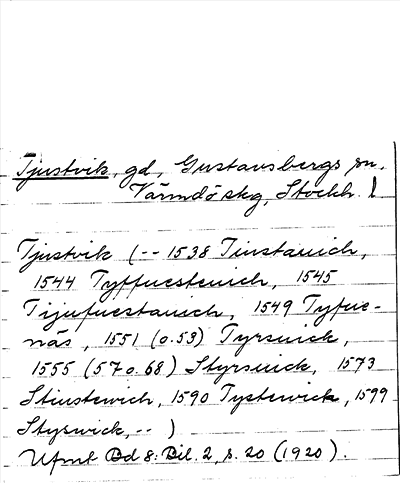 Tjustvik, gd, Gustavsbergs sn,
Värmdö skg, Stockh. l
Tjustvik (-- 1538 Tinstauich,
1544 Tyffuesteuich, 1545
Tijufuestauich, 1549 Tyfue-
näs, 1551 (o.53) Tyrsuick,
1555 (57 o. 68) Styrsuick, 1573
Stiustewich, 1590 Tystewick, 1599
Styswick, -- )
Ufml Bd 8: Bil. 2, s. 20 (1920).